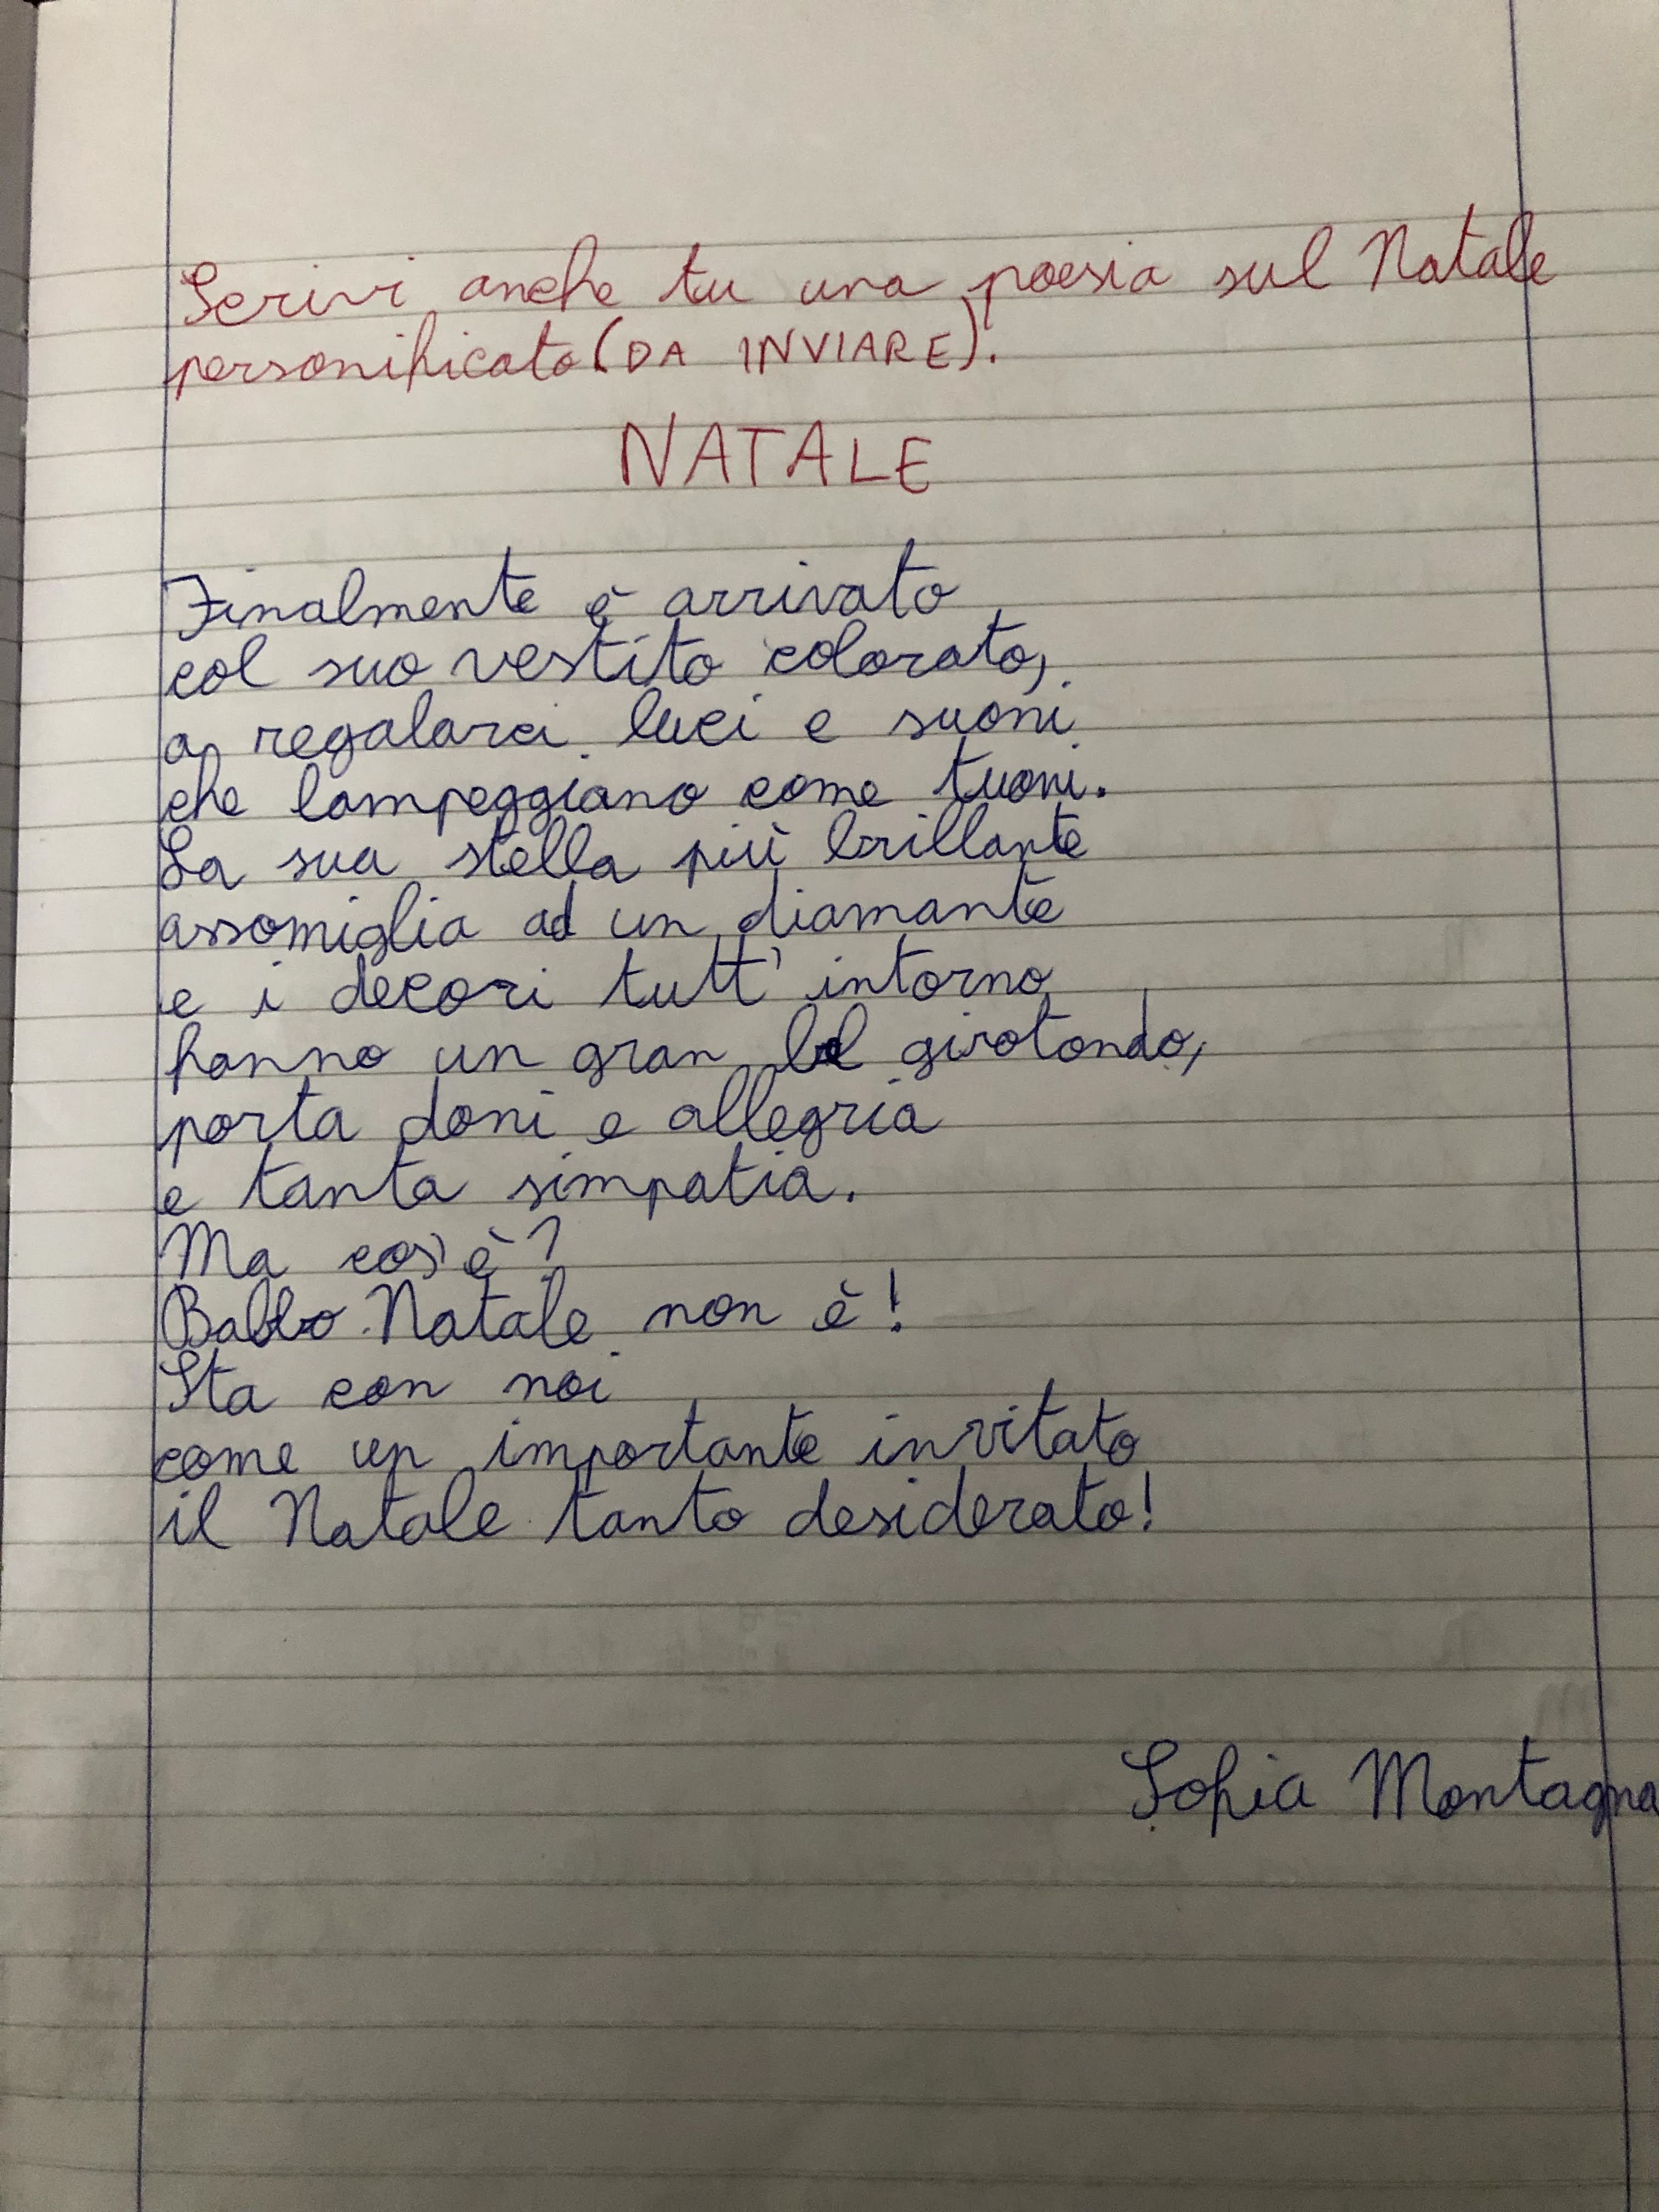 Scrivi anche tu una poesia sul Natale
personificato (DA INVIARE).
NATALE
Finalmente è arrivato
col suo vestito colorato,
a regalarci luci e suoni
che lampeggiano come tuoni.
La sua stella più brillante
assomiglia ad un diamante
e i decori tutt'intorno
hanno un gran bel girotondo,
porta doni e allegria
e tanta simpatia.
Ma cos'è?
Babbo Natale non è!
Sta con noi
come un importante invitato
il Natale tanto desiderato!
Sofia Montagna